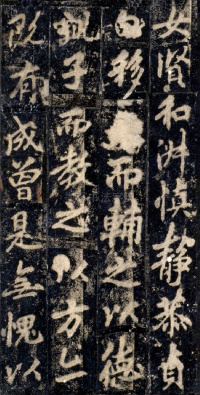 女賢和淑慎靜恭貞
自移而輔之以德
子而教之以方
既有成曾是無愧以